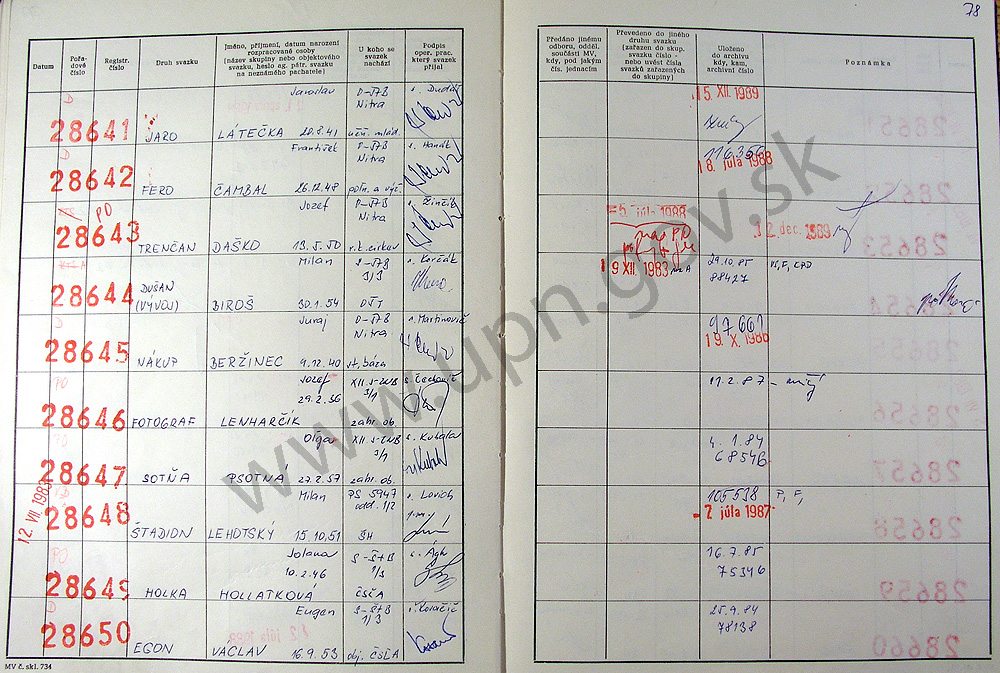 78
Datum
Pořa-
dové
číslo
Registr.
číslo
Druh svazku
Jméno, příjmení, datum narození
rozpracované osoby
(název skupiny nebo objektového
svazku, heslo ag. pátr. svazku
na neznámého pachatele)
U koho se
svazek
nachází
Podpis
oper. prac.
který svazek
přijal
Předáno jinému
odboru, odděl.
součásti MV,
kdy, pod jakým
čís. jednacím
Převedeno do jiného
druhu svazku
(zařazen do skup.
svazku číslo -
nebo uvést čísla
svazků zařazených
do skupiny)
Uloženo
do archivu
kdy, kam,
archivní číslo
Poznámka
A
28641
JARO
Jaroslav
LÁTEČKA 20.8.41
O-ŠTB
Nitra
15. XII. 1989
A
28642
FERO
František
ČAMBAL 26.12.48
O-ŠTB
Nitra
s. Hanák
116356
18. júla 1988
PO
28643
TRENČAN
Jozef
DAŠKO 13.5.50
O-ŠTB
Nitra
r.k. cirkev
s. Žinčík
5. júla 1988
12. dec. 1989
A
28644
DUŠAN
(VÝVOJ)
Milan
BIROŠ 30.1.54
S-ŠTB
s. Korčák
19 XII. 1983
29.10.85
88427
28645
NÁKUP
Juraj
BERŽINEC 9.12.40
O-ŠTB
Nitra
st. báza
s. Martinovič
97661
19. X. 1986
PO
28646
FOTOGRAF
Jozef
29.2.56
LENHARČÍK
XII. S-ZNB
3/1
zahr. ob.
11.2.87 - ničý
PO
28647
SOTŇA
Oľga
PSOTNÁ 27.2.57
XII. S-ZNB
3/1
zahr. ob.
s. Kubala
4.1.84
68546
12. VII. 1983
28648
ŠTADION
Milan
LEHOTSKÝ 15.10.51
PS 5947
odd. 1/2
ŠH
105538
P, F,
- 2 júla 1987
PO
28649
HOLKA
Jolana
10.2.46
HOLLATKOVÁ
S-ŠTB
1/3
ČSČA
s. Ágh
16.7.85
75346
A
28650
EGON
Eugen
VÁCLAV 16.9.53
S-ŠTB
1/3
obj. ČSLA
s. Kováčič
25.9.84
78138
MV č. skl. 734
www.upn.gov.sk